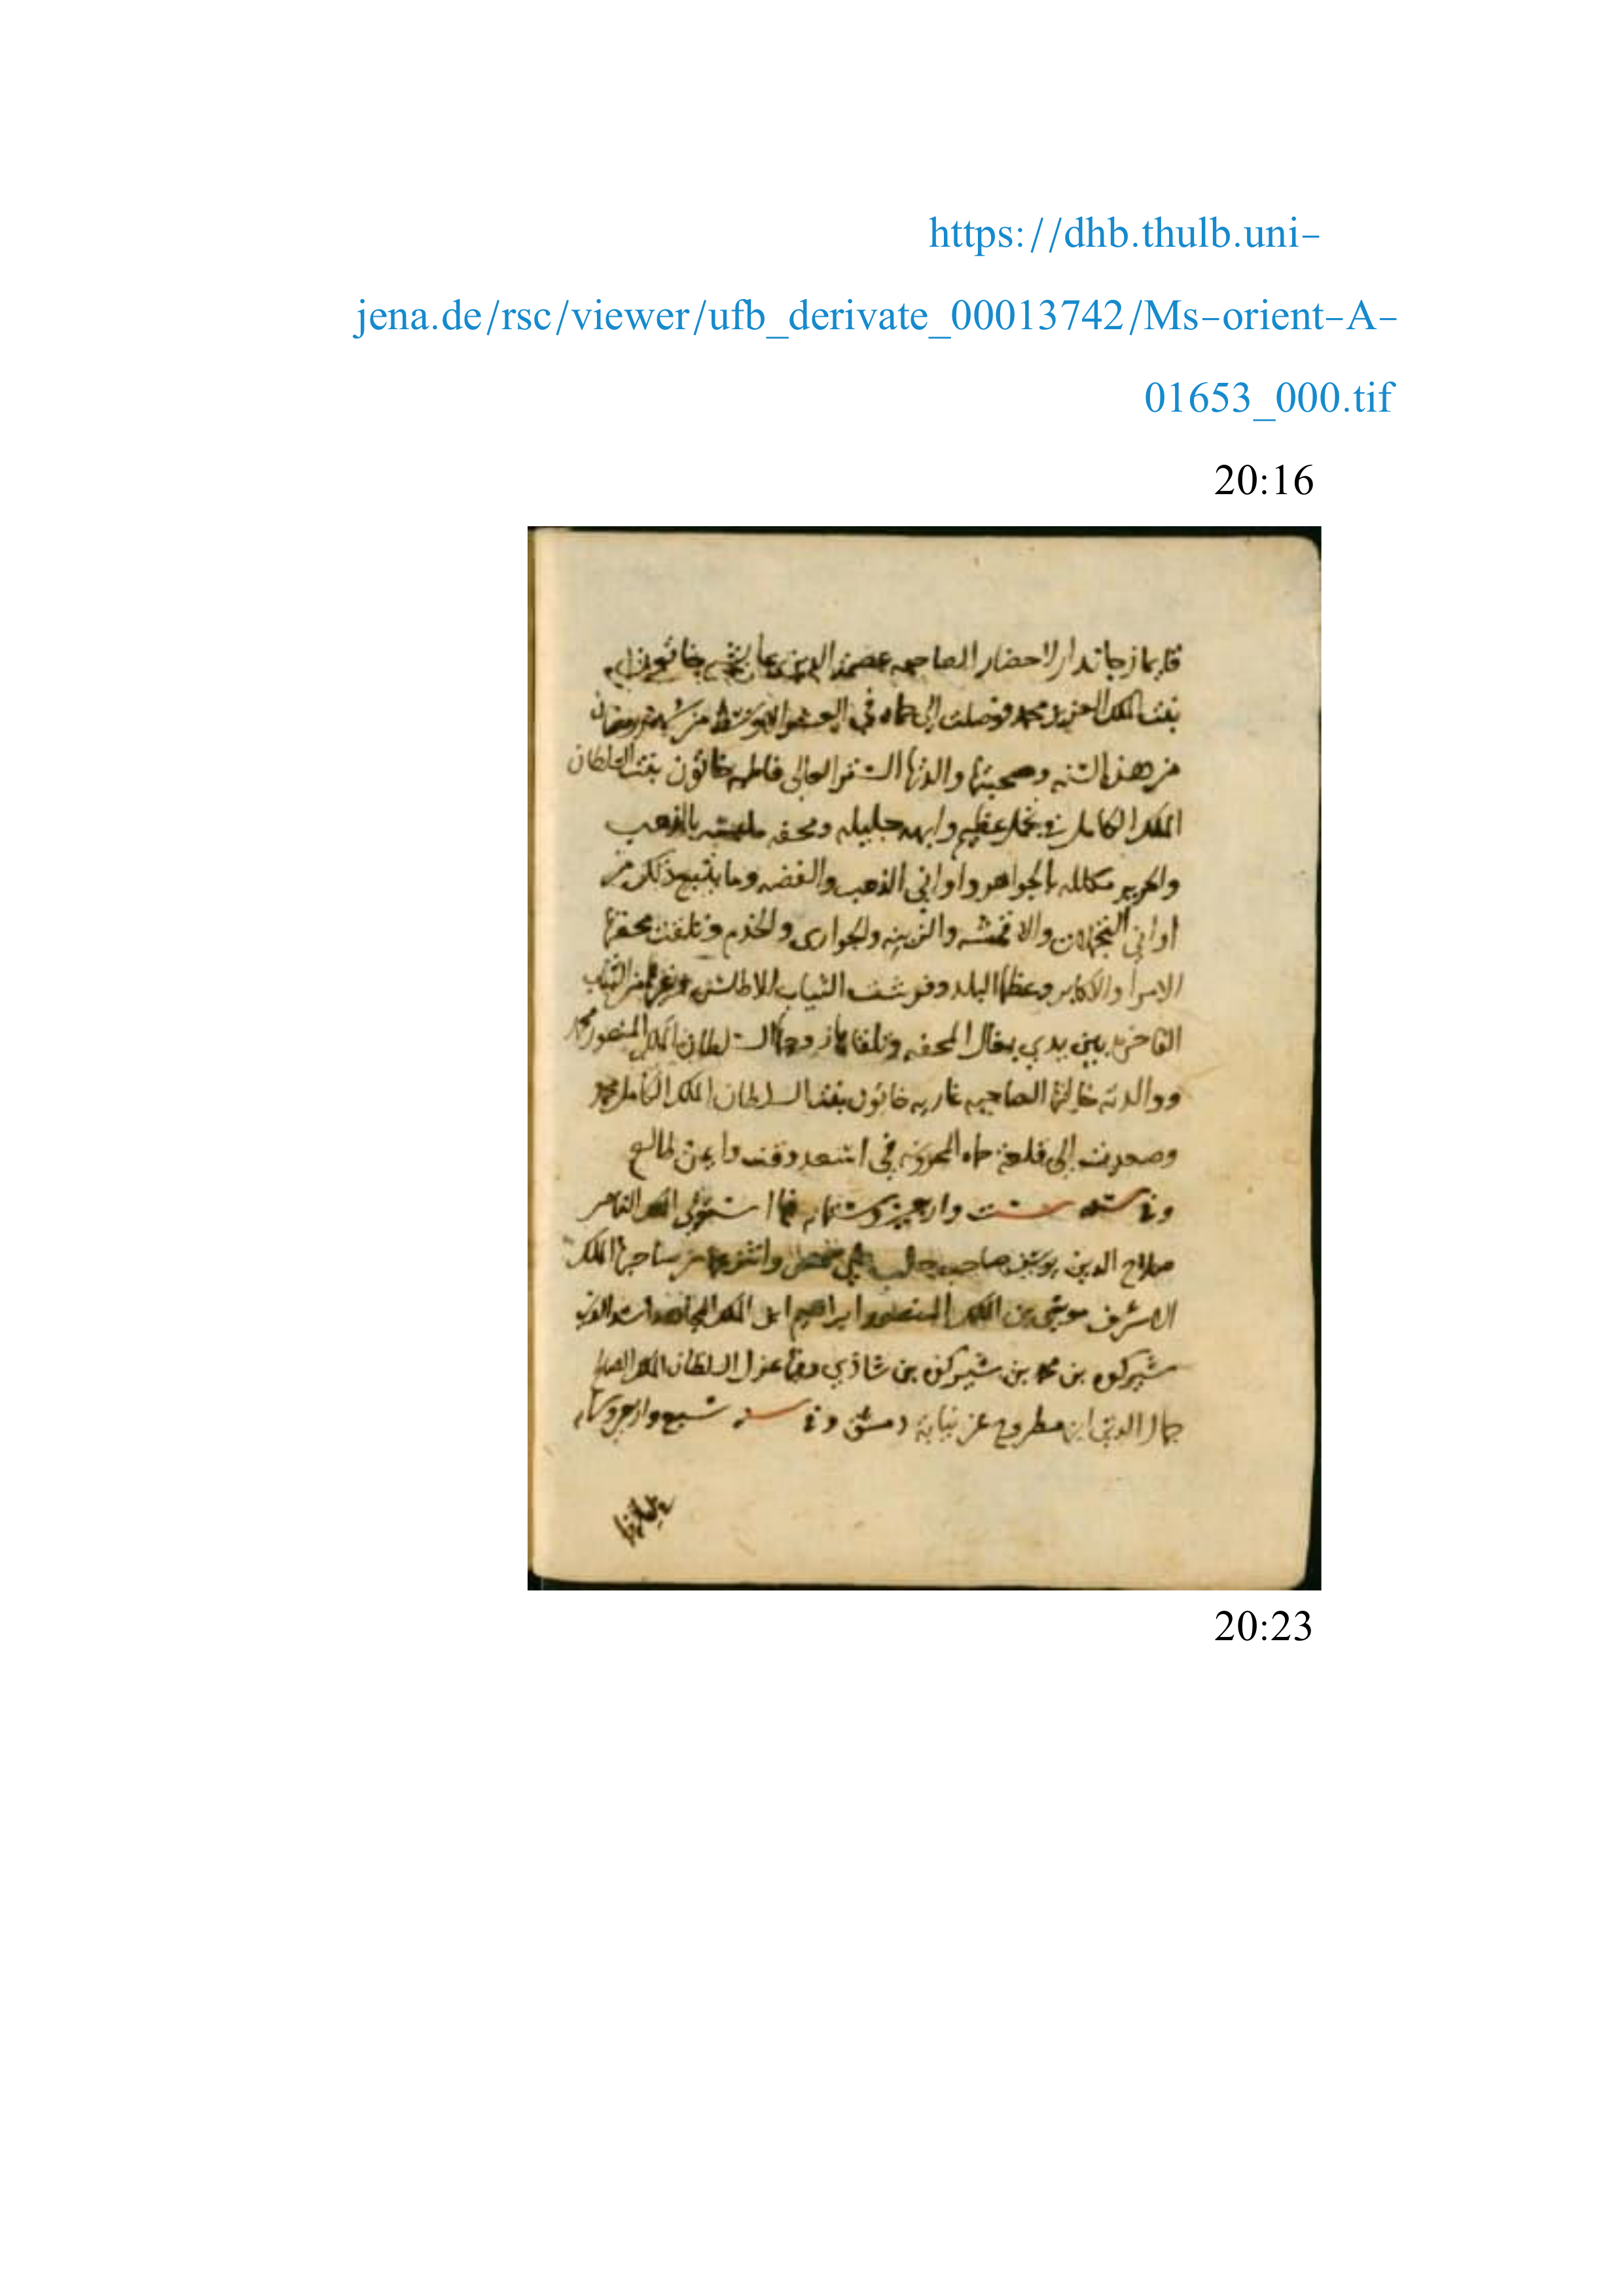 https://dhb.thulb.uni-
jena.de/rsc/viewer/ufb_derivate_00013742/Ms-orient-A-
01653_000.tif
20:16
قايماز جاندار لاحضار الصاحبه عصمة الدين عايشه خاتون
بنت الملك العزيز محمد فوصلت الى حماه في العشر الاوسط من شهر رمضان
من هذه السنه وصحبتها والدتها الستر العالي فاطمه خاتون بنت السلطان
الملك الكامل في تجمل عظيم وابهه جليله ومحفه ملبسه بالذهب
والحرير مكلله بالجواهر واواني الذهب والفضه وما يتبع ذلك من
اواني والاقمشه والزينه والجواري والخدم وتلقت محفتها
الامرا والاكابر وعظما البلد وفرشت الثياب الاطلس وغيرها من الثياب
الفاخره بين يدي بغال المحفه وتلقاها زوجها السلطان الملك المنصور محمد
ووالدته خالتها الصاحبه غازيه خاتون بنت السلطان الملك الكامل محمد
وصعدت الى قلعة حماه المحروسه في اسعد وقت وايمن طالع
وفي سنه ست واربعين وستمايه فيها استولى الملك الناصر
صلاح الدين يوسف صاحب حلب على حمص وانتزعها من صاحبها الملك
الاشرف موسى بن الملك المنصور ابراهيم ابن الملك المجاهد اسد الدين
شيركوه بن محمد بن شيركوه بن شاذي وفيها عزل السلطان الملك الصالح
جمال الدين ابن مطروح عن نيابة دمشق وفي سنه سبع واربعين وستمايه
20:23